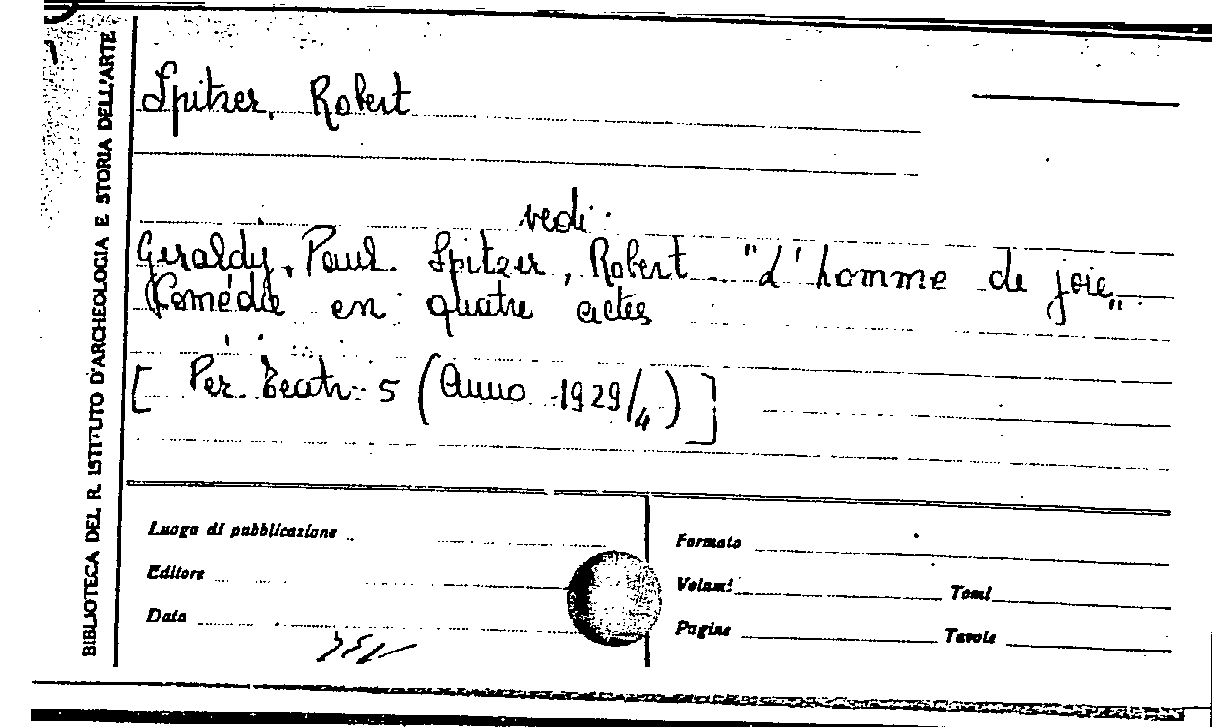 BIBLIOTECA DEL R. ISTITUTO D'ARCHEOLOGIA E STORIA DELL'ARTE
Spitzer, Robert
vedi:
Geraldy, Paul. Spitzer, Robert "L'homme de joie"
Comédie en quatre actes
[ Per. Teatr. 5 (Anno 1929/4) ]
Luogo di pubblicazione
Editore
Data
Formato
Volumi Tomi
Pagine Tavole